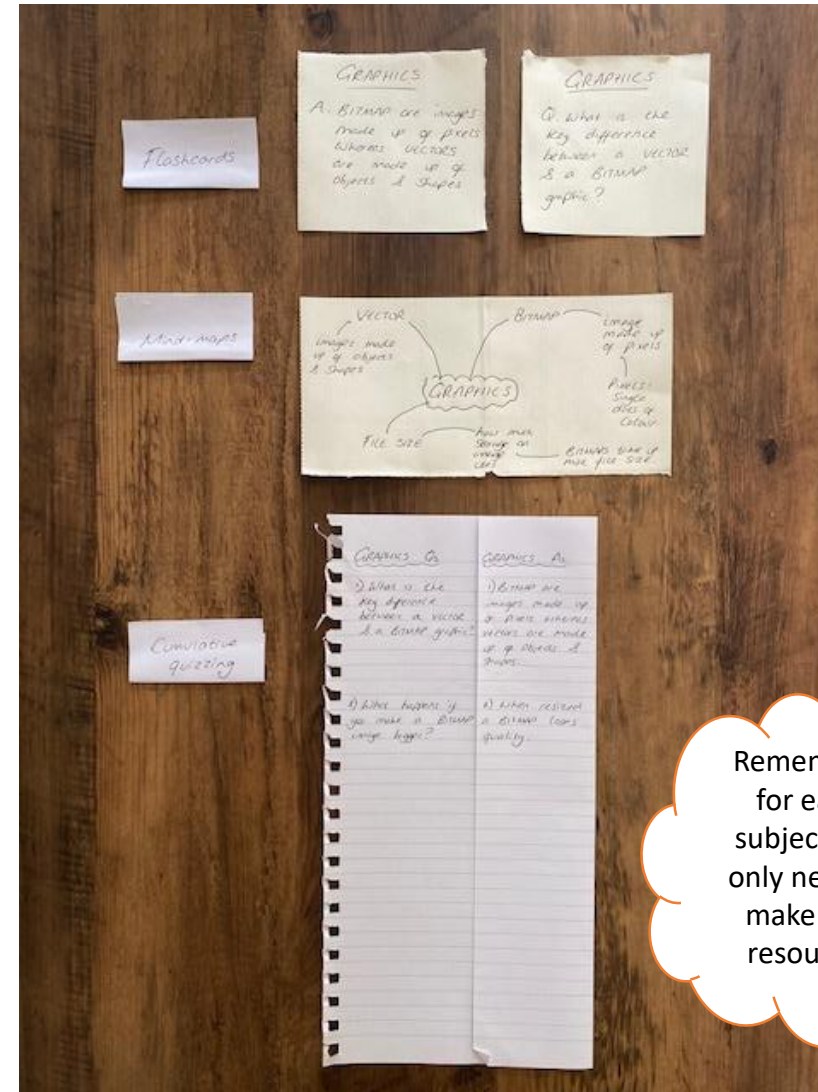 Flashcards
GRAPHICS
A. BITMAP are images
made up of pixels
Whereas VECTORS
are made up of
objects & Shapes
GRAPHICS
Q. What is the
key difference
between a VECTOR
& a BITMAP
graphic?
Mind-maps
VECTOR
images made
up of objects
& Shapes
BITMAP
image
made up
of pixels
Pixels:
Single
dots of
Colour.
GRAPHICS
FILE SIZE
how much
Storage an
image
BITMAPS take up
more file size.
Cumulative
quizzing
GRAPHICS Qs
1) What is the
key difference
between a vector
& a BITMAP graphic?
2) What happens if
you make a BITMAP
image bigger?
GRAPHICS As
1) BITMAP are
images made up
of pixels whereas
vectors are made
up of objects &
shapes.
2) When resized
a BITMAP
quality.
for
only
make